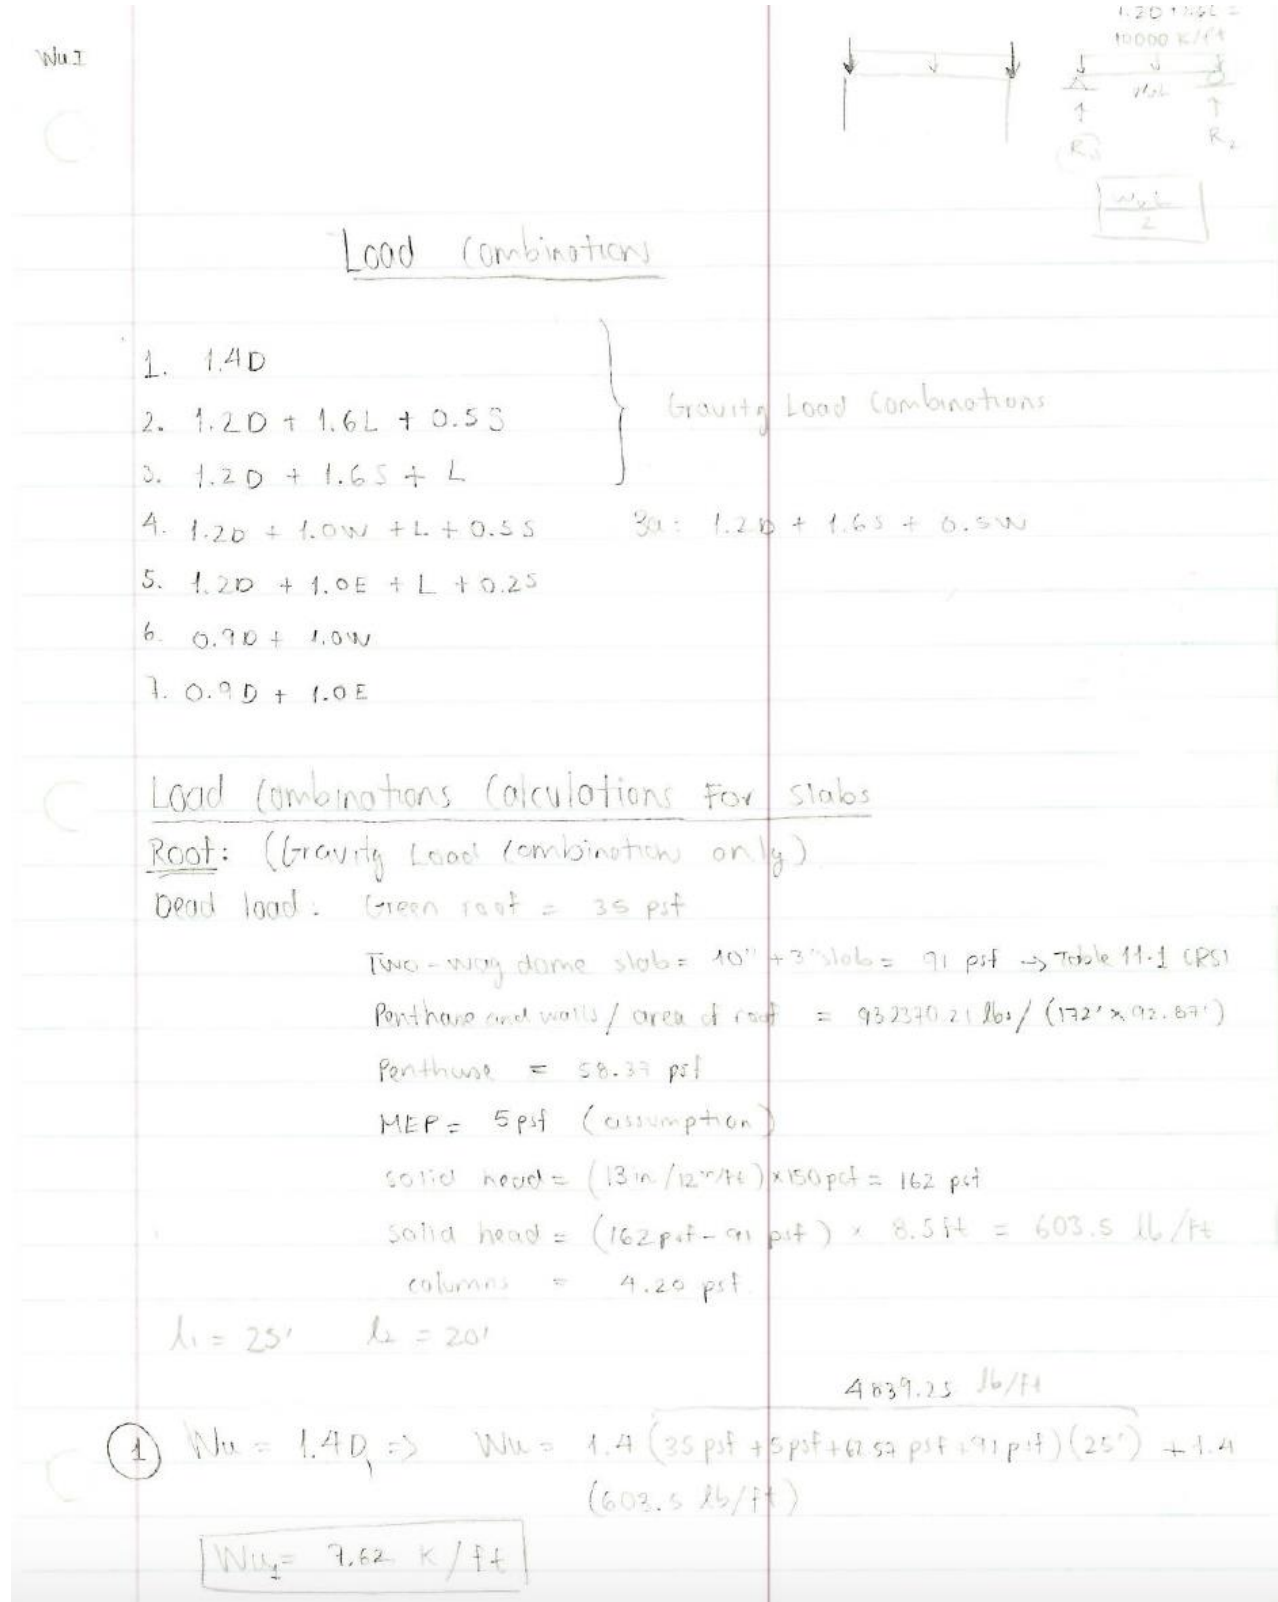 Wu I
1.2D + 1.6L =
10000 K/ft
WuL
R₂
WuL
2
Load Combinations
1. 1.4D
2. 1.2D + 1.6L + 0.5S
3. 1.2D + 1.6S + L
Gravity Load Combinations
4. 1.2D + 1.0W + L + 0.5S
3a: 1.2D + 1.6S + 0.5W
5. 1.2D + 1.0E + L + 0.2S
6. 0.9D + 1.0W
7. 0.9D + 1.0E
Load Combinations Calculations For Slabs
Roof: (Gravity Load Combination only)
Dead load: Green roof = 35 psf
Two-way dome slab = 10" + 3" slab = 91 psf → Table 11-1 CRSI
Penthouse and walls / area of roof = 932370.21 lbs / (172' x 92.87')
Penthouse = 58.37 psf
MEP = 5 psf (assumption)
solid head = (13 in / 12 in/ft) x 150 pcf = 162 psf
solid head = (162 psf - 91 psf) x 8.5 ft = 603.5 lb/ft
columns = 4.20 psf
l₁ = 25' l₂ = 20'
4839.25 lb/ft
① Wu = 1.4D, => Wu = 1.4 (35 psf + 5 psf + 62.57 psf + 91 psf) (25') + 1.4
(603.5 lb/ft)
Wu₁ = 7.62 K/ft